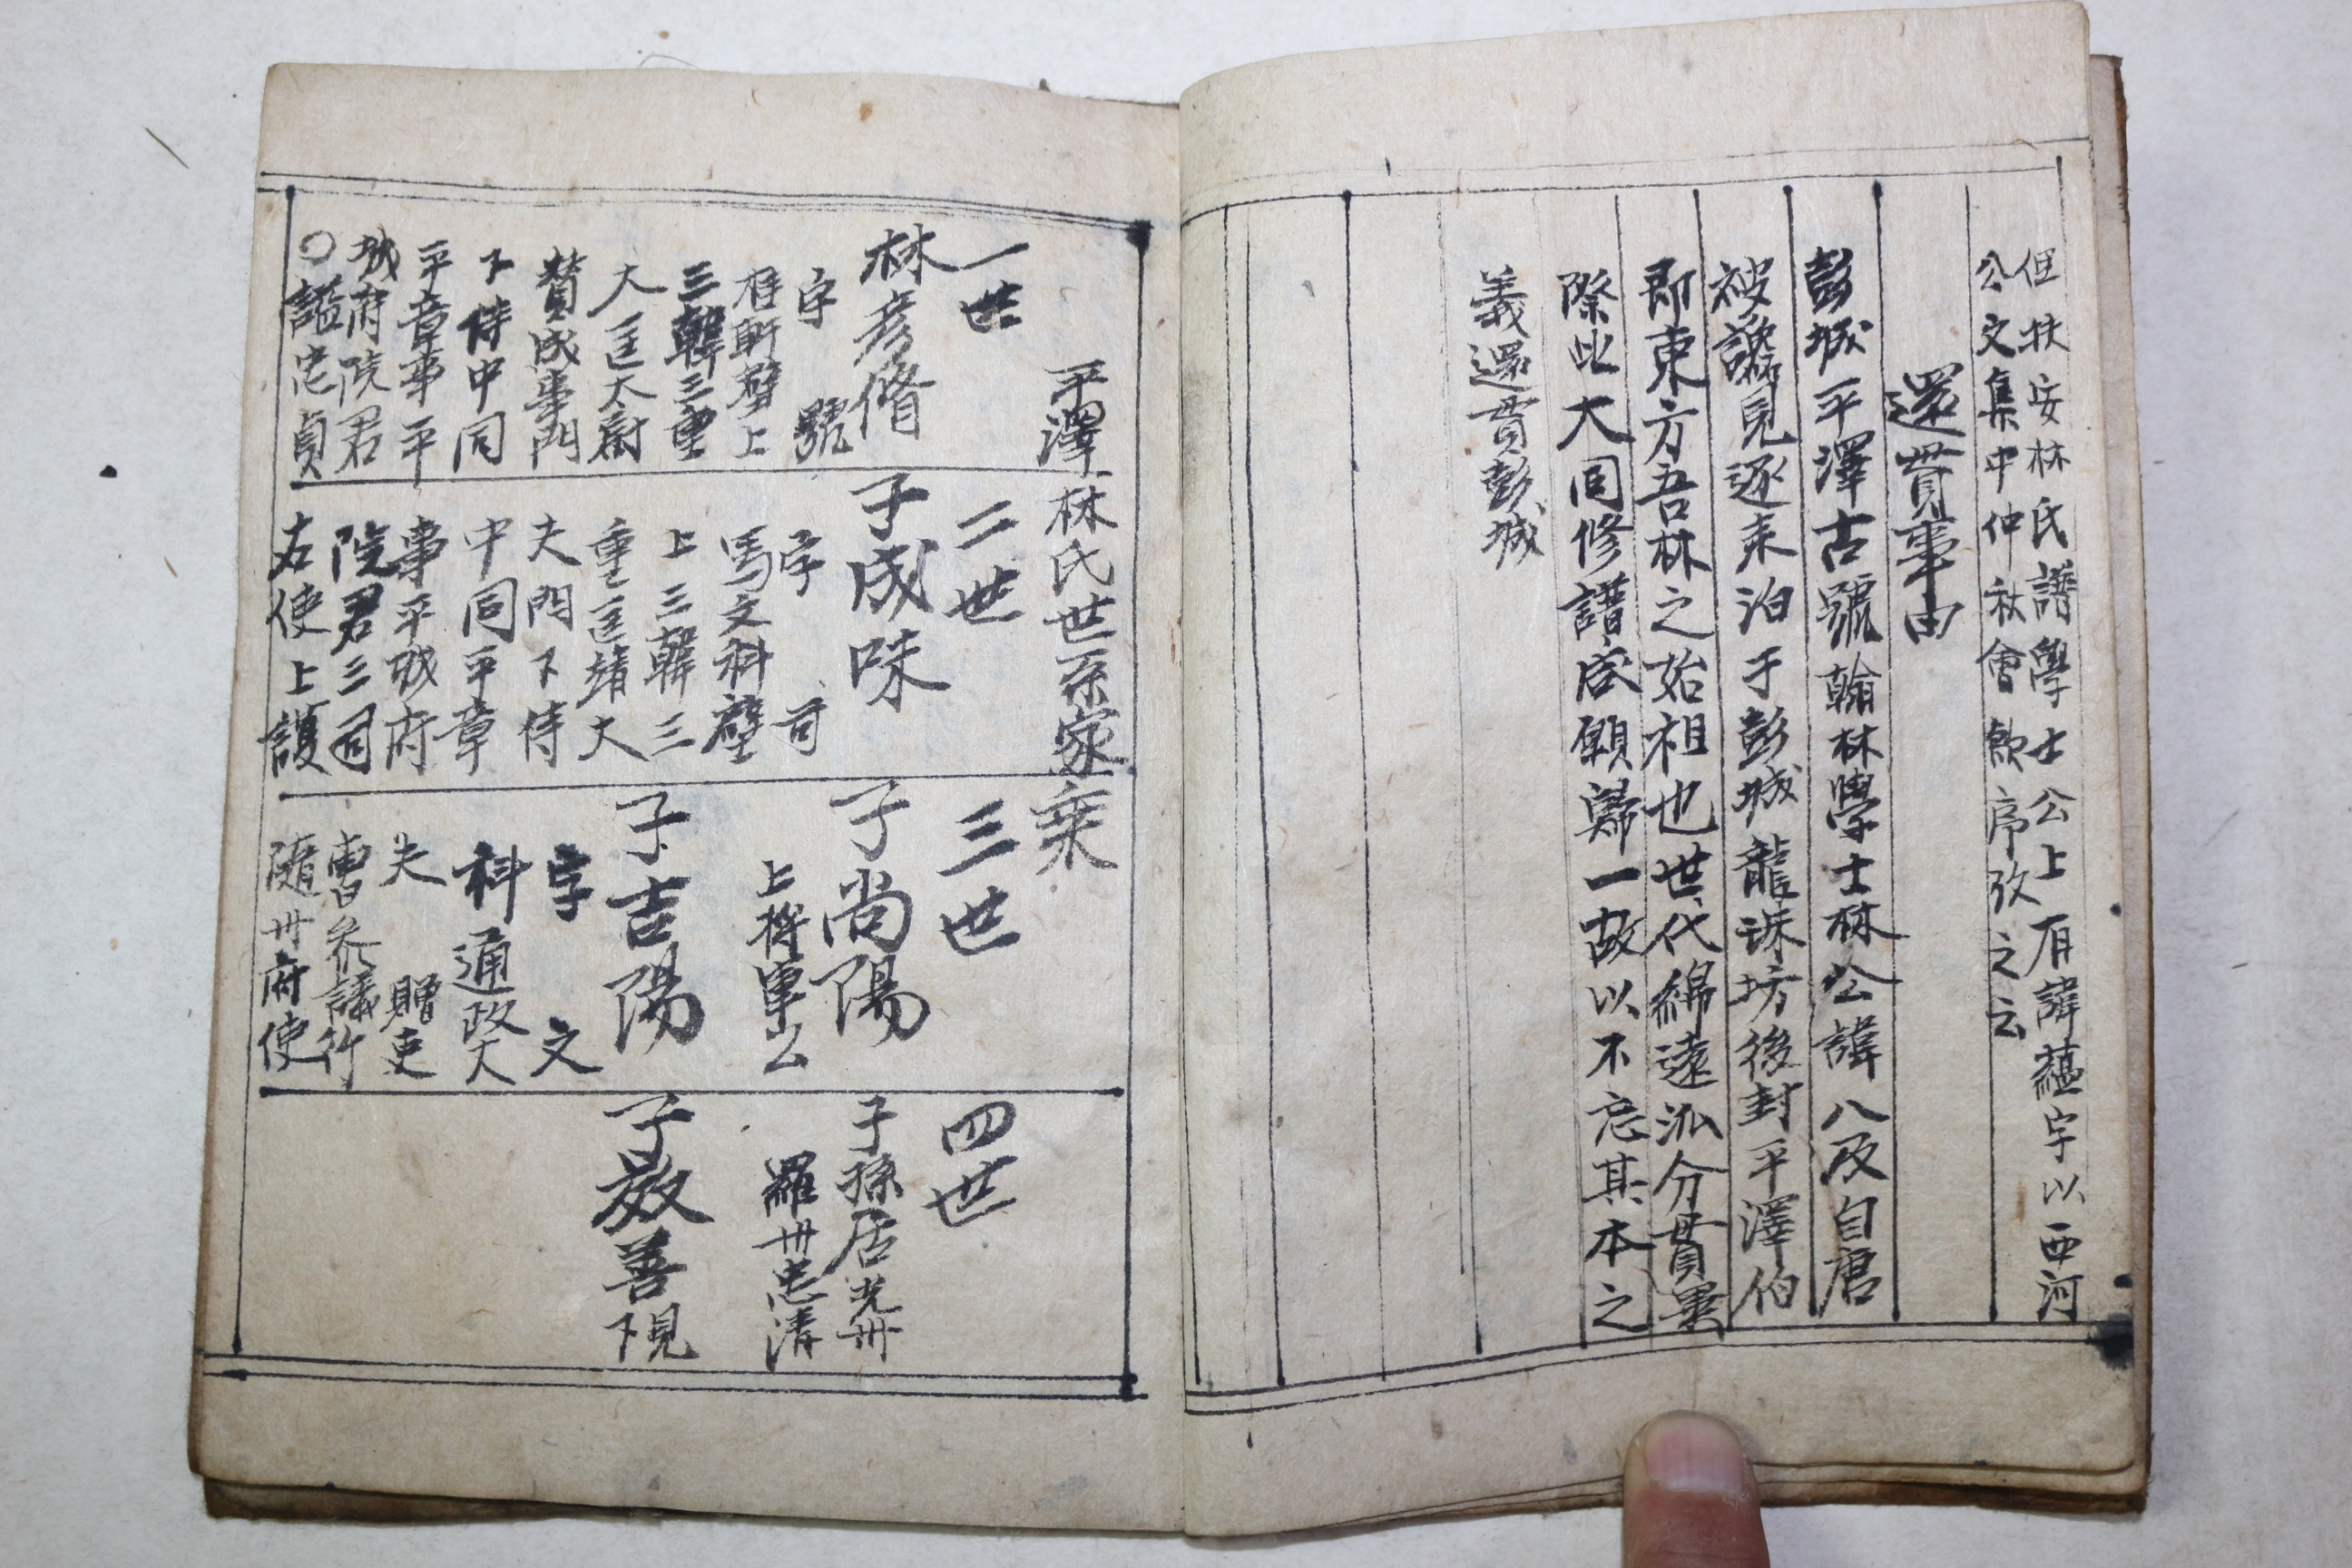 但扶安林氏譜學士公上有諱蘊字以西河
公文集中仲秋會飮序攷之云
還貫事由
彭城平澤古號翰林學士林公諱八及自唐
被讒見逐來泊于彭城龍珠坊後封平澤伯
即東方吾林之始祖也世代綿遠派分貫異
際此大同修譜咸願歸一故以不忘其本之
義還貫彭城
平澤林氏世系家乘
一世
林彦脩
字 號
桂軒壁上
三韓三重
大匡太尉
贊成事門
下侍中同
平章事平
城府院君
○謚忠貞
二世
子成味
字 司
馬文科壁
上三韓三
重匡靖大
夫門下侍
中同平章
事平城府
院君三司
右使上護
三世
子尚陽
上將軍公
子吉陽
字 文
科通政大
夫 贈吏
曹參議行
隨州府使
四世
子孫居光州
羅州忠淸
子敂善下見